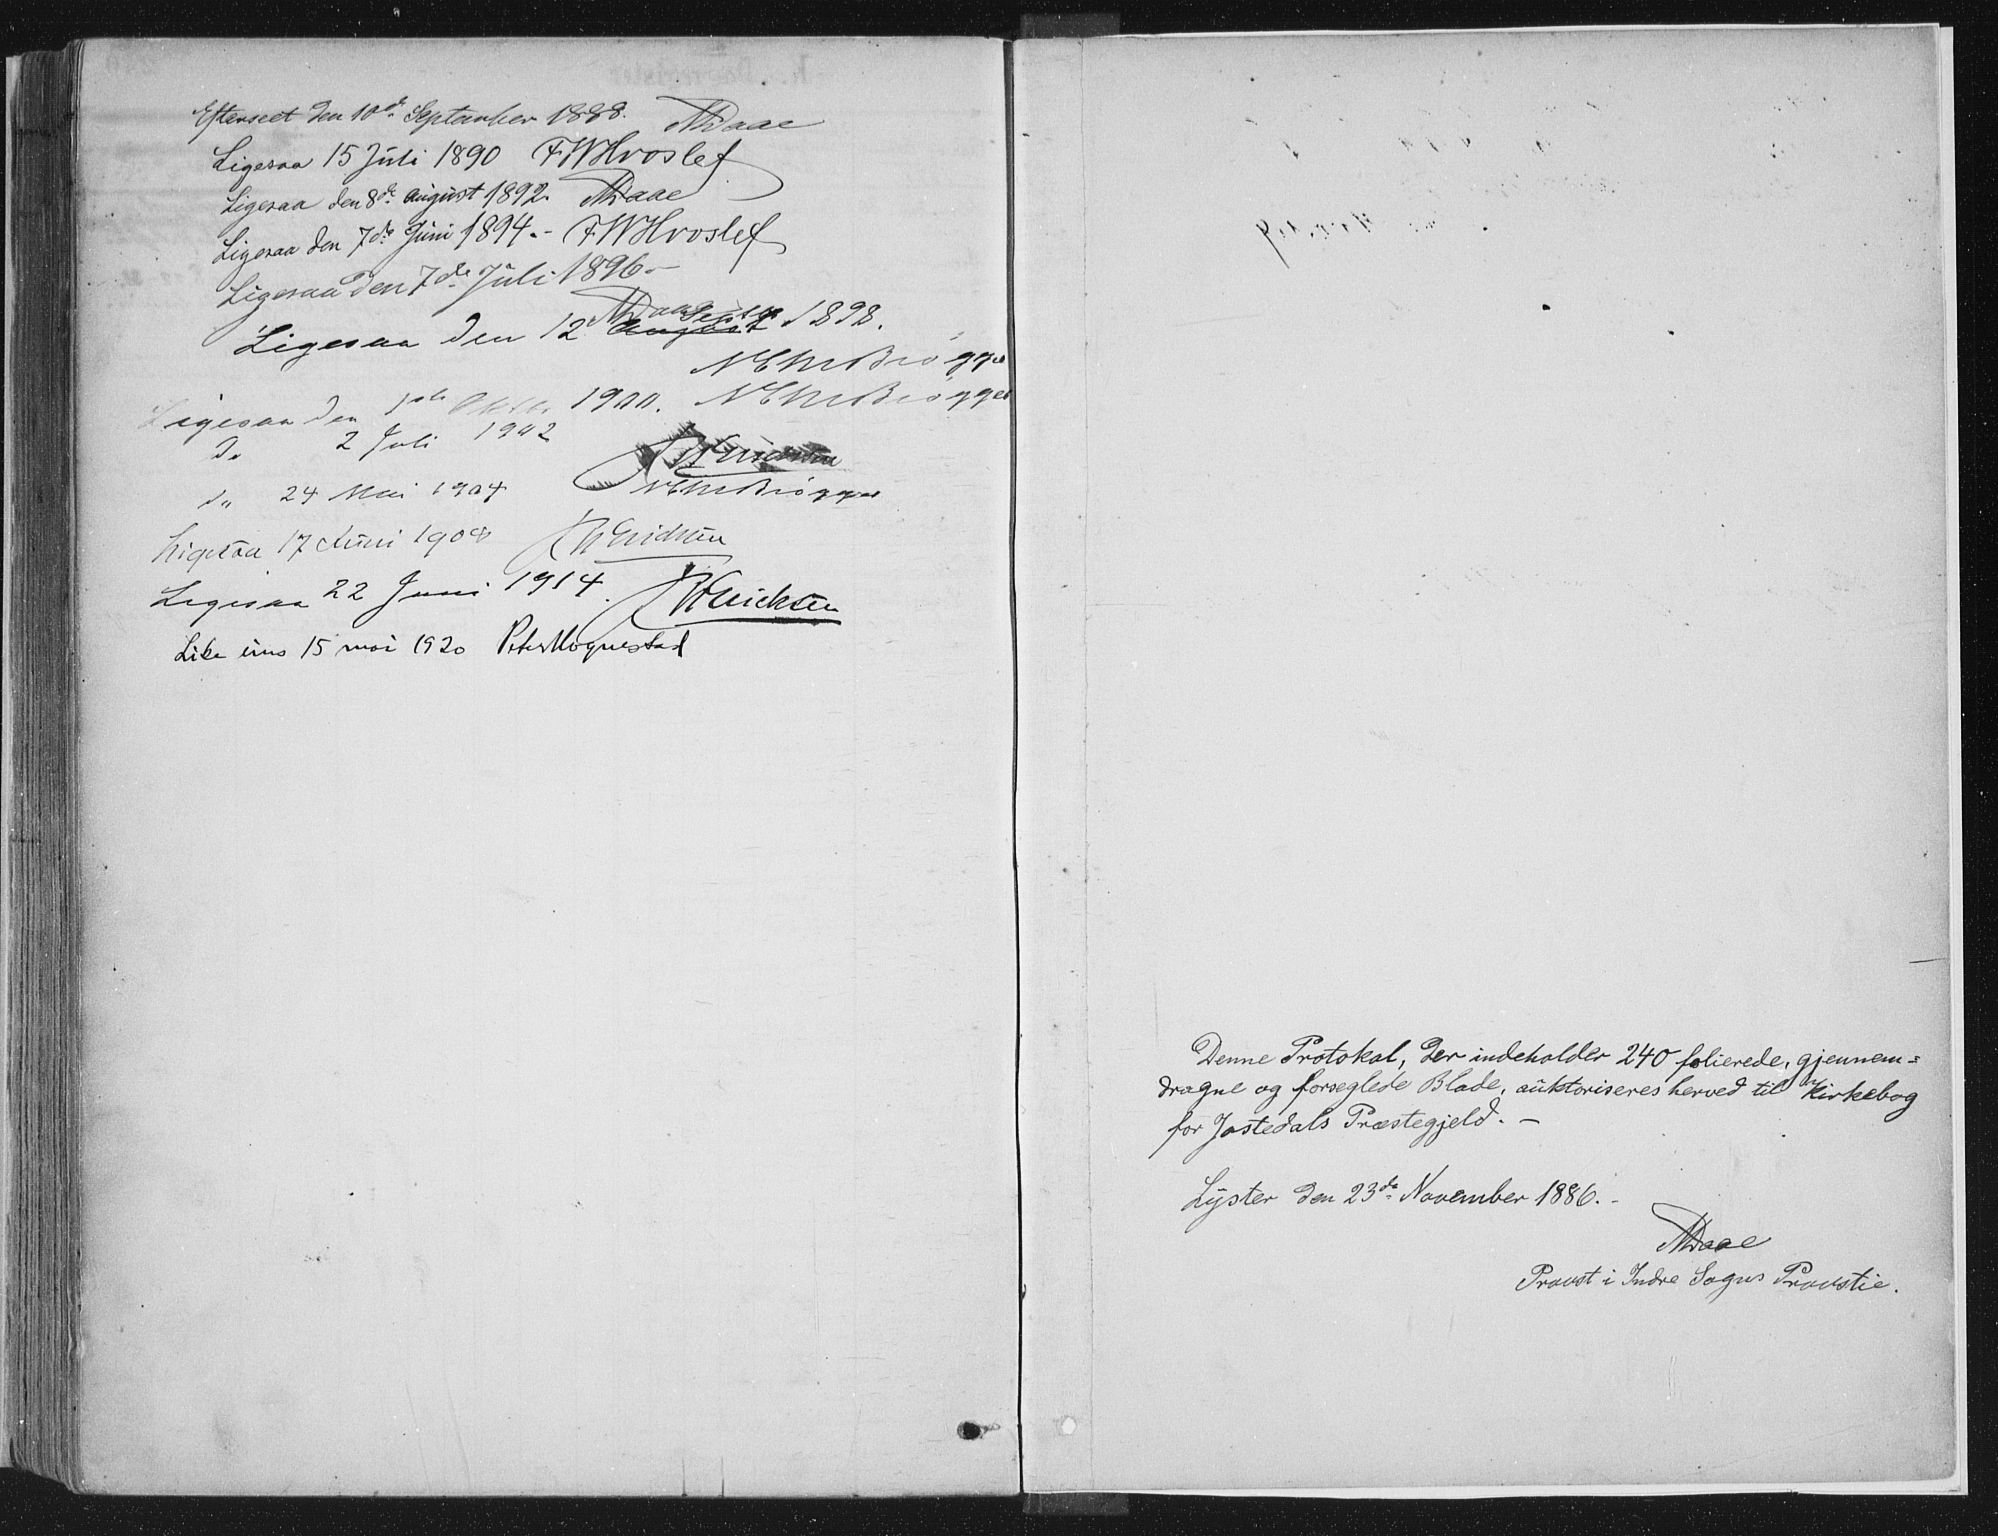 Efterseet den 10de September 1888. Daae
Ligesaa 15 Juli 1890 FWHvoslef
Ligesaa den 8de August 1892. Daae
Ligesaa den 7de Juni 1894.- FWHvoslef
Ligesaa den 7de Juli 1896.-
Daae
Ligesaa den 12 August Septbr 1898.
Brøgger
Ligesaa den 1ste Oktbr 1900. Brøgger
Do 2 Juli 1902
do 24 Mai 1904 Brøgger
Ligesaa 17 Juni 1908
Ligesaa 22 Juni 1914.
Like eins 15 mai 1920 Peter Hognestad
Denne Protokol, der indeholder 240 folierede, gjennem=
dragne og forseglede Blade, auktoriseres herved til en Kirkebog
for Jostedals Præstegjeld. -
Lyster den 23de November 1886. -
Daae
Provst i Indre Sogns Provstie.